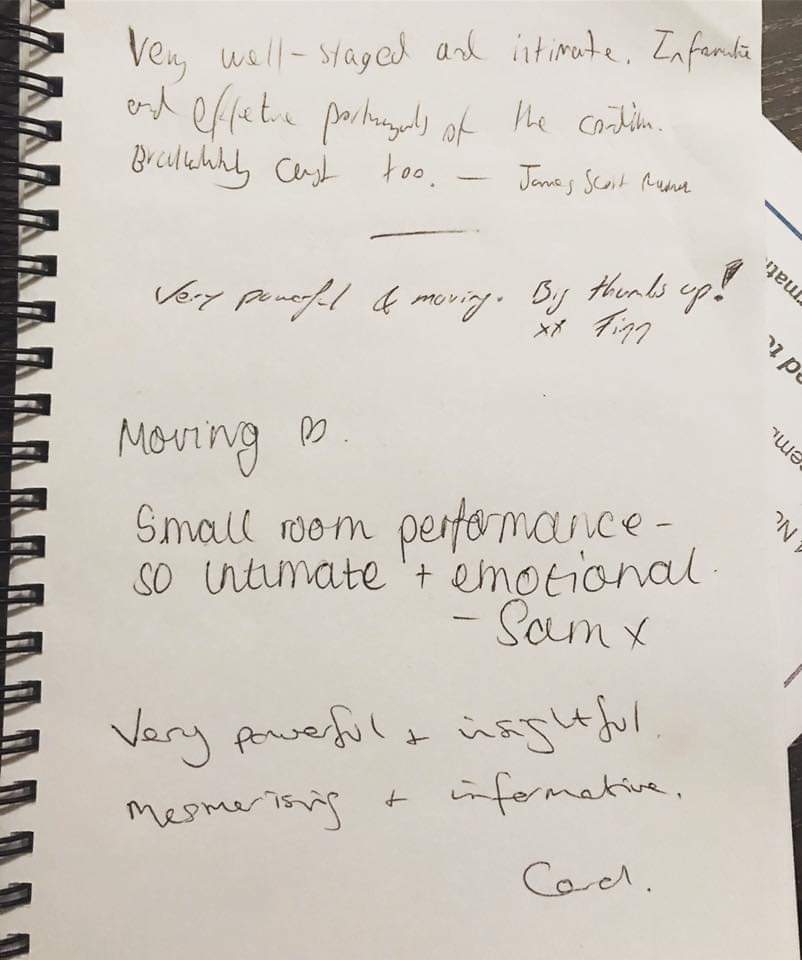 Very well-staged and intimate. Informative
and effective portrayals of the condition.
cast too. — James Scott
Very powerful & moving. Big thumbs up!
xx Finn
Moving ♡.
Small room performance -
so intimate + emotional.
- Sam x
Very powerful + insightful.
Mesmerising + informative.
Carol.